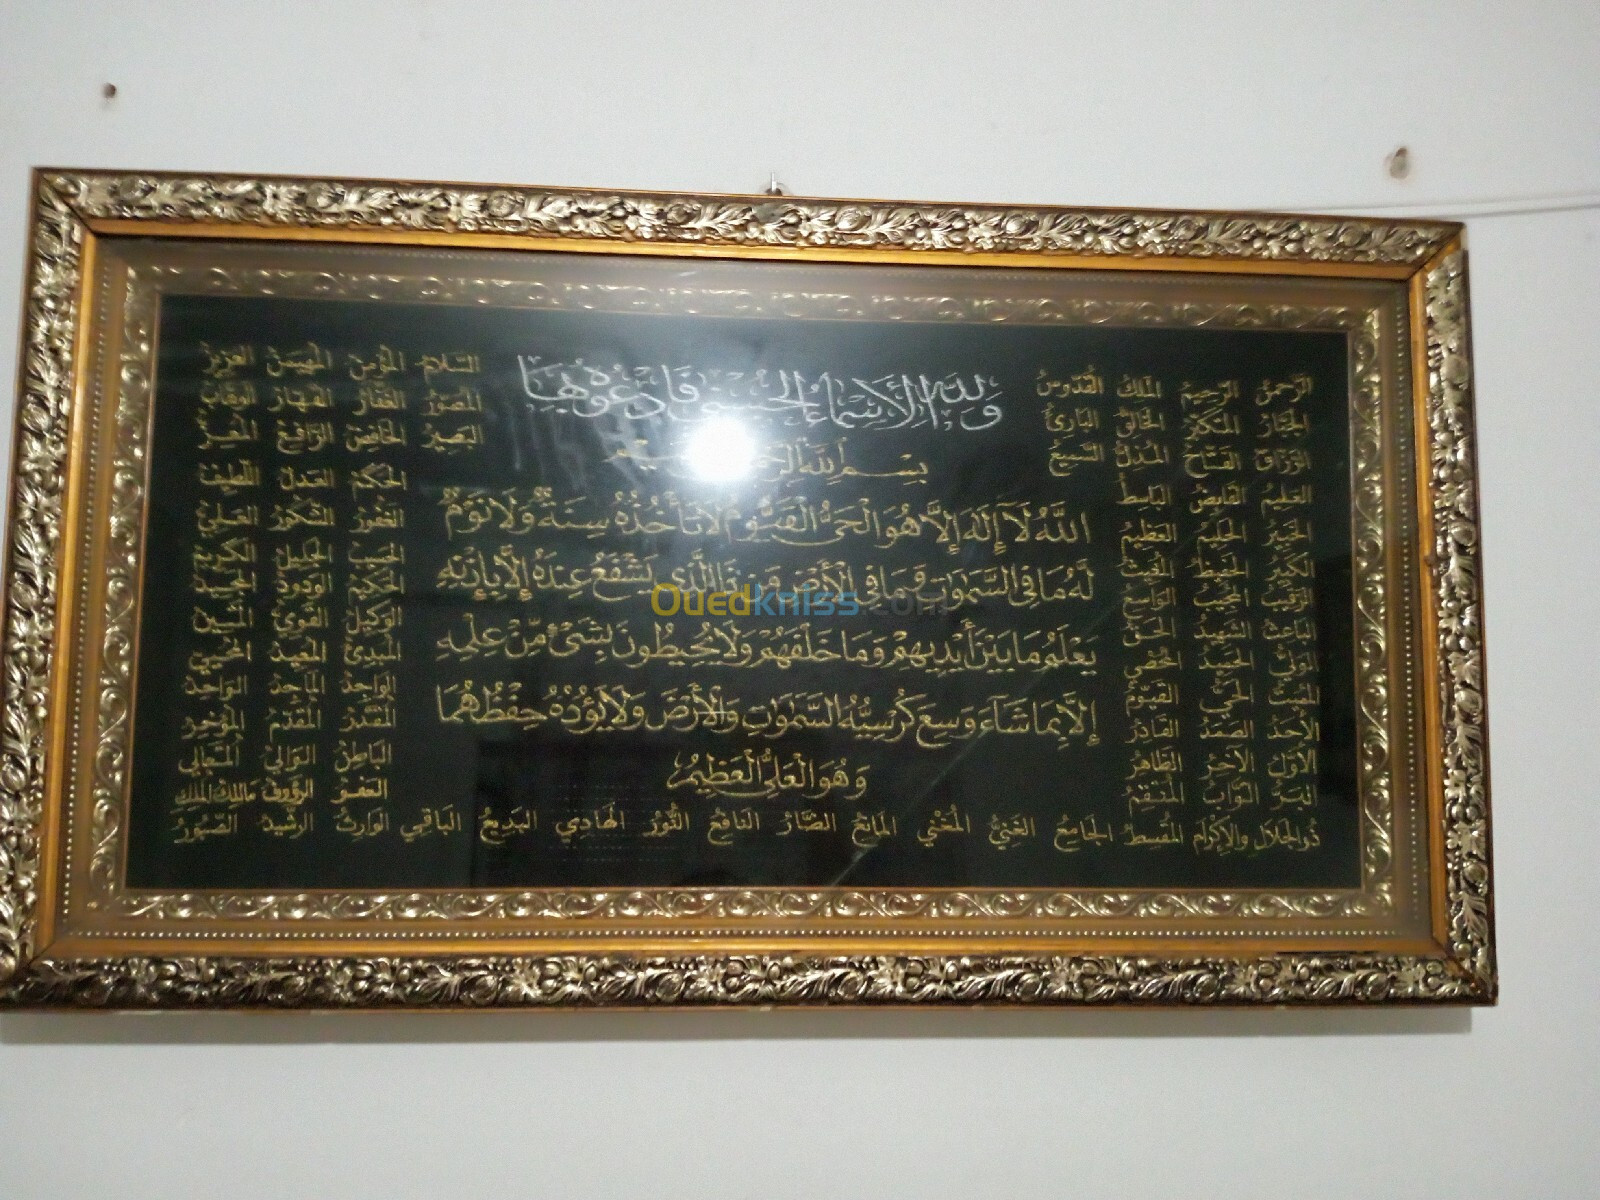 وَلِلَّهِ الْأَسْمَاءُ الْحُسْنَىٰ فَادْعُوهُ بِهَا
بِسْمِ اللَّهِ
اللَّهُ لَا إِلَٰهَ إِلَّا هُوَ الْحَيُّ الْقَيُّومُ لَا تَأْخُذُهُ سِنَةٌ وَلَا نَوْمٌ
لَهُ مَا فِي السَّمَٰوَاتِ وَمَا فِي الْأَرْضِ مَنْ ذَا الَّذِي يَشْفَعُ عِنْدَهُ إِلَّا بِإِذْنِهِ
يَعْلَمُ مَا بَيْنَ أَيْدِيهِمْ وَمَا خَلْفَهُمْ وَلَا يُحِيطُونَ بِشَيْءٍ مِنْ عِلْمِهِ
إِلَّا بِمَا شَاءَ وَسِعَ كُرْسِيُّهُ السَّمَٰوَاتِ وَالْأَرْضَ وَلَا يَؤُدُهُ حِفْظُهُمَا
وَهُوَ الْعَلِيُّ الْعَظِيمُ
الرَّحْمنُ الرَّحِيمُ الملكُ القُدّوسُ
الجَبّارُ المتكبّر الخالقُ البَارِئُ
الرَّزاقُ الفَتّاحُ المُذِلُّ السَّميعُ
العَليمُ القَابِضُ البَاسِطُ
الخَبيرُ الحَليمُ العَظِيمُ
الكَبيرُ الحَفيظُ المُقيتُ
الرَّقيبُ المُجيبُ الوَاسِعُ
البَاعثُ الشّهيدُ الحَقُّ
الوَليُّ الحَميدُ المُحْصي
المُميتُ الحَيُّ القَيّومُ
الأحَدُ الصَّمَدُ القَادِرُ
الأوّلُ الآخِرُ الظّاهِرُ
البَرُّ التَّوّابُ المُنْتَقِمُ
السَّلامُ المُؤمنُ المُهَيمِنُ العَزيزُ
المُصَوّرُ الغَفّارُ القَهّارُ الوَهّابُ
البَصيرُ الخَافِضُ الرّافعُ المُعزُّ
الحَكَمُ العَدلُ اللّطيفُ
الغَفُورُ الشَّكُورُ العَليُّ
الحَسيبُ الجَليلُ الكَريمُ
الحَكيمُ الوَدودُ المَجيدُ
الوَكيلُ القَويُّ المَتينُ
المُبْدِئُ المُعيدُ المُحيي
الوَاجِدُ المَاجِدُ الوَاحِدُ
المُقْتَدِرُ المُقَدِّمُ المُؤَخِّرُ
البَاطِنُ الوَالي المُتَعَالي
العَفوّ الرَّؤوفُ مَالكُ المُلكِ
ذُو الجَلالِ وَالإِكْرَامِ المُقسِطُ الجَامِعُ الغَنيُّ المُغْني المَانعُ الضّارُ النَافِعُ النُّورُ الهَادي البَديعُ البَاقي الوَارِثُ الرَشيدُ الصَّبُورُ
Ouedkniss.com